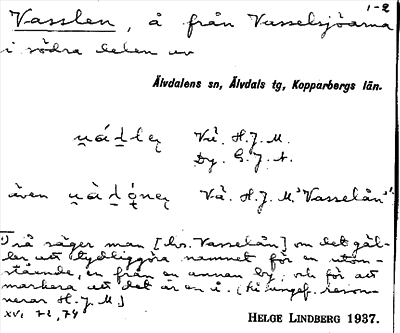 1-2
Vasslen, å från Vasselsjöarna
i södra delen av
Älvdalens sn, Älvdals tg, Kopparbergs län.
Vå. H.J.M.
By. G.J.A.
även Vå. H.J.M. "Vasselån"¹
¹) Så säger man [bv. Vasselån] om det gäl-
ler att tydliggöra namnet för en utom-
stående, en från en annan by, och för att
markera att det är en å.
H.J.M.
XVI 72, 74
HELGE LINDBERG 1937.